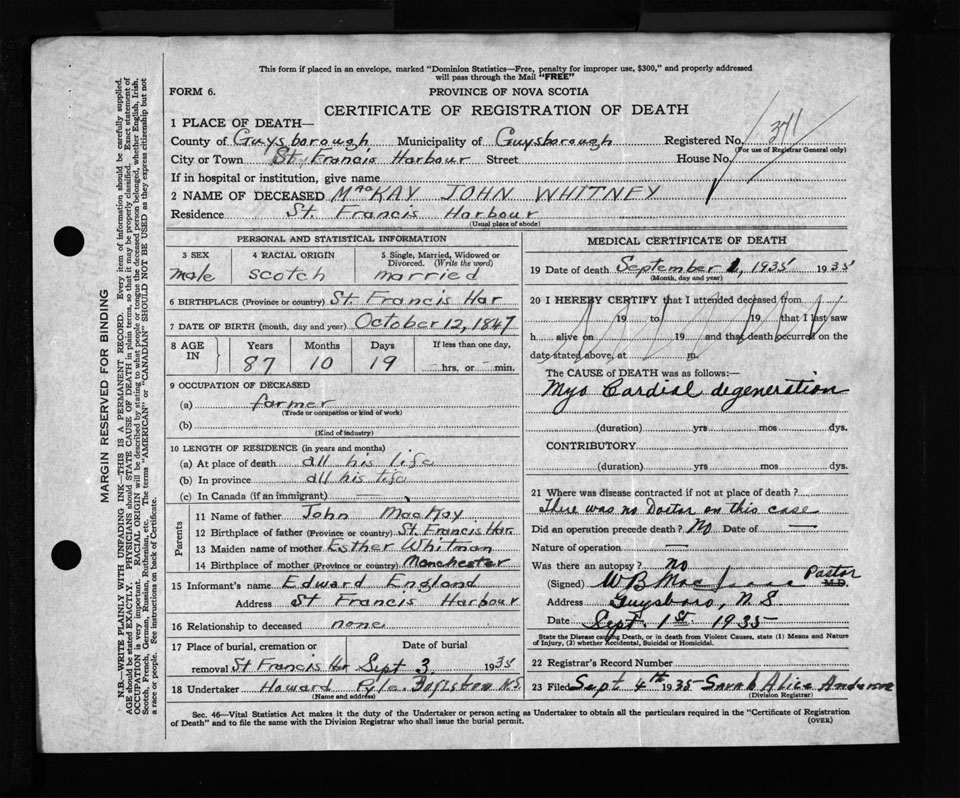 This form if placed in an envelope, marked "Dominion Statistics—Free, penalty for improper use, $300," and properly addressed
will pass through the Mail "FREE"
FORM 6.
PROVINCE OF NOVA SCOTIA
CERTIFICATE OF REGISTRATION OF DEATH
1 PLACE OF DEATH—
County of Guysborough Municipality of Guysborough Registered No. 371
(For use of Registrar General only)
City or Town St. Francis Harbour Street House No.
If in hospital or institution, give name
2 NAME OF DECEASED MacKAY JOHN WHITNEY
Residence St. Francis Harbour
(Usual place of abode)
PERSONAL AND STATISTICAL INFORMATION
3 SEX 4 RACIAL ORIGIN 5 Single, Married, Widowed or
Divorced. (Write the word)
male scotch married
6 BIRTHPLACE (Province or country) St. Francis Har
7 DATE OF BIRTH (month, day and year) October 12, 1847
8 AGE IN Years Months Days If less than one day,
87 10 19 hrs. or min.
9 OCCUPATION OF DECEASED
(a) farmer
(Trade or occupation or kind of work)
(b)
(Kind of industry)
10 LENGTH OF RESIDENCE (in years and months)
(a) At place of death all his life
(b) In province all his life
(c) In Canada (if an immigrant) —
Parents
11 Name of father John MacKay
12 Birthplace of father (Province or country) St. Francis Har.
13 Maiden name of mother Esther Whitman
14 Birthplace of mother (Province or country) Manchester
15 Informant's name Edward England
Address St Francis Harbour
16 Relationship to deceased none
17 Place of burial, cremation or Date of burial
removal St Francis Hbr Sept 3 1935
18 Undertaker Howard Pyle. Boylston N.S
(Name and address)
MEDICAL CERTIFICATE OF DEATH
19 Date of death September 1, 1935 1935
(Month, day and year)
20 I HEREBY CERTIFY that I attended deceased from
19 to 19 that I last saw
h alive on 19 and that death occurred on the
date stated above, at m.
The CAUSE of DEATH was as follows:—
Myo Cardial degeneration
(duration) yrs mos dys.
CONTRIBUTORY
(duration) yrs mos dys.
21 Where was disease contracted if not at place of death?
There was no Doctor on this case
Did an operation precede death? No Date of —
Nature of operation —
Was there an autopsy? no
(Signed) W B Mac Pastor M.D.
Address Guysboro, N S
Date Sept. 1st 1935
State the Disease causing Death, or in death from Violent Causes, state (1) Means and Nature
of Injury, (2) whether Accidental, Suicidal or Homicidal.
22 Registrar's Record Number
23 Filed Sept 4th 1935 Sarah Alice Anderson
(Division Registrar)
Sec. 46—Vital Statistics Act makes it the duty of the Undertaker or person acting as Undertaker to obtain all the particulars required in the "Certificate of Registration
of Death" and to file the same with the Division Registrar who shall issue the burial permit.
(OVER)
MARGIN RESERVED FOR BINDING
N.B.—WRITE PLAINLY WITH UNFADING INK—THIS IS A PERMANENT RECORD. Every item of information should be carefully supplied.
AGE should be stated EXACTLY. PHYSICIANS should STATE CAUSE OF DEATH in plain terms, so that it may be properly classified. Exact statement of
OCCUPATION is very important. RACIAL ORIGIN will be described by stating to what people or tongue the deceased person belonged, whether English, Irish,
Scotch, French, German, Russian, Ruthenian, etc. The terms "AMERICAN" or "CANADIAN" SHOULD NOT BE USED as they express citizenship but not
a race or people. See instructions on back of Certificate.